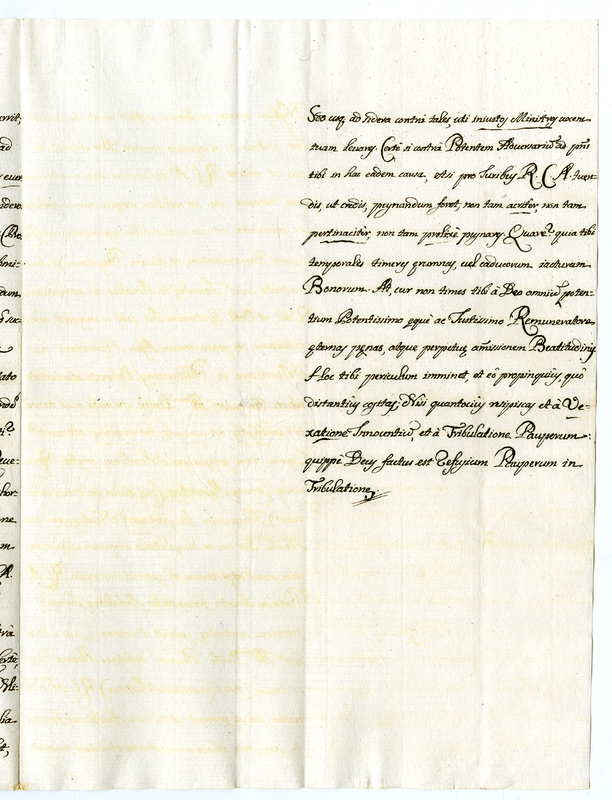 usq. ad sidera contra tales, uti iniustos Ministros vocem
tuam levares. Certè si contra Potentem Adversarium, ad
tibi in hac eadem causa, etsi pro Juribus R. C. A. tuen-
dis, ut credis, pugnandum foret, non tam acriter, non tam
pertinaciter, non tam pugnares. Quare? quia tibi
temporales timeres ærumnas, vel caducorum iacturam
Bonorum. At, cur non times tibi à Deo omnium poten-
tium Potentissimo æquè ac Justissimo Remuneratore
æternas pœnas, atque perpetuæ amissionem Beatitudinis
Hoc tibi periculum imminet, et eò propinquius, quò
distantius cogitas; Nisi quantocius resipiscas et à Ve-
xatione Innocentium, et à Tribulatione Pauperum:
quippè Deus factus est Refugium Pauperum in
Tribulatione.